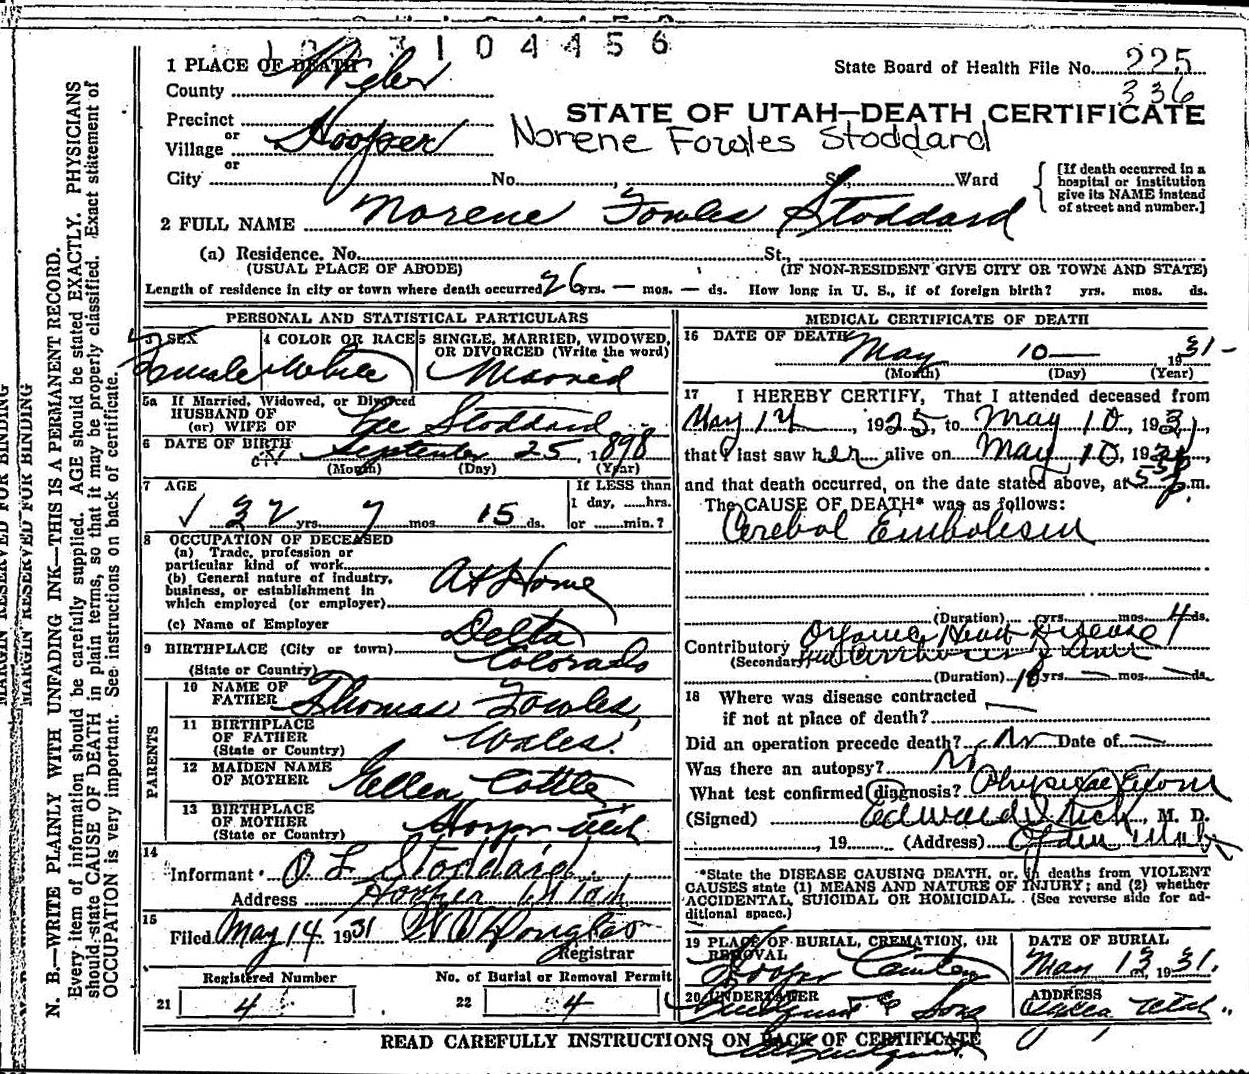 3104456
1 PLACE OF DEATH
State Board of Health File No. 225
336
County Weber
STATE OF UTAH—DEATH CERTIFICATE
Precinct
or
Village Hooper
Norene Fowles Stoddard
or
City No. , St., Ward
[If death occurred in a hospital or institution give its NAME instead of street and number.]
2 FULL NAME Norene Fowles Stoddard
(a) Residence. No. St.,
(USUAL PLACE OF ABODE) (IF NON-RESIDENT GIVE CITY OR TOWN AND STATE)
Length of residence in city or town where death occurred 26 yrs. — mos. — ds. How long in U. S., if of foreign birth? yrs. mos. ds.
PERSONAL AND STATISTICAL PARTICULARS
3 SEX 4 COLOR OR RACE 5 SINGLE, MARRIED, WIDOWED, OR DIVORCED (Write the word)
Female White Married
5a If Married, Widowed, or Divorced
HUSBAND OF
(or) WIFE OF Lee Stoddard
6 DATE OF BIRTH September 25, 1898
(Month) (Day) (Year)
7 AGE
If LESS than
1 day, hrs.
32 yrs. 7 mos. 15 ds. or min.?
8 OCCUPATION OF DECEASED
(a) Trade, profession or
particular kind of work
(b) General nature of industry,
business, or establishment in
which employed (or employer)
At Home
(c) Name of Employer
Delta
9 BIRTHPLACE (City or town)
(State or Country) Colorado
PARENTS
10 NAME OF
FATHER Thomas Fowles
11 BIRTHPLACE
OF FATHER Wales.
(State or Country)
12 MAIDEN NAME
OF MOTHER Ellen Cottle
13 BIRTHPLACE
OF MOTHER Hooper Utah
(State or Country)
14
Informant O L Stoddard
Address Hooper Utah
15
Filed May 14 1931 Douglas
Registrar
Registered Number No. of Burial or Removal Permit
21 4 22 4
MEDICAL CERTIFICATE OF DEATH
16 DATE OF DEATH May 10— 1931-
(Month) (Day) (Year)
17 I HEREBY CERTIFY, That I attended deceased from
May 14, 1925, to May 10, 1931,
that I last saw her alive on May 10, 1931,
and that death occurred, on the date stated above, at p.m.
The CAUSE OF DEATH* was as follows:
Cerebal Embolism
(Duration) yrs. mos. 4 ds.
Contributory Organic Heart Disease
(Secondary)
(Duration) yrs. — mos. — ds.
18 Where was disease contracted
if not at place of death?
Did an operation precede death? No Date of —
Was there an autopsy? No
What test confirmed diagnosis? Physical Exam
(Signed) Edward I Rich, M. D.
, 19 (Address) Ogden Utah
*State the DISEASE CAUSING DEATH, or, in deaths from VIOLENT
CAUSES state (1) MEANS AND NATURE OF INJURY; and (2) whether
ACCIDENTAL, SUICIDAL OR HOMICIDAL. (See reverse side for ad-
ditional space.)
19 PLACE OF BURIAL, CREMATION, OR
REMOVAL
DATE OF BURIAL
Hooper May 13, 1931.
20 UNDERTAKER ADDRESS
Lindquist & Sons Ogden Utah
READ CAREFULLY INSTRUCTIONS ON BACK OF CERTIFICATE
MARGIN RESERVED FOR BINDING
MARGIN RESERVED FOR BINDING
N. B.—WRITE PLAINLY WITH UNFADING INK—THIS IS A PERMANENT RECORD.
Every item of information should be carefully supplied. AGE should be stated EXACTLY. PHYSICIANS
should state CAUSE OF DEATH in plain terms, so that it may be properly classified. Exact statement of
OCCUPATION is very important. See instructions on back of certificate.